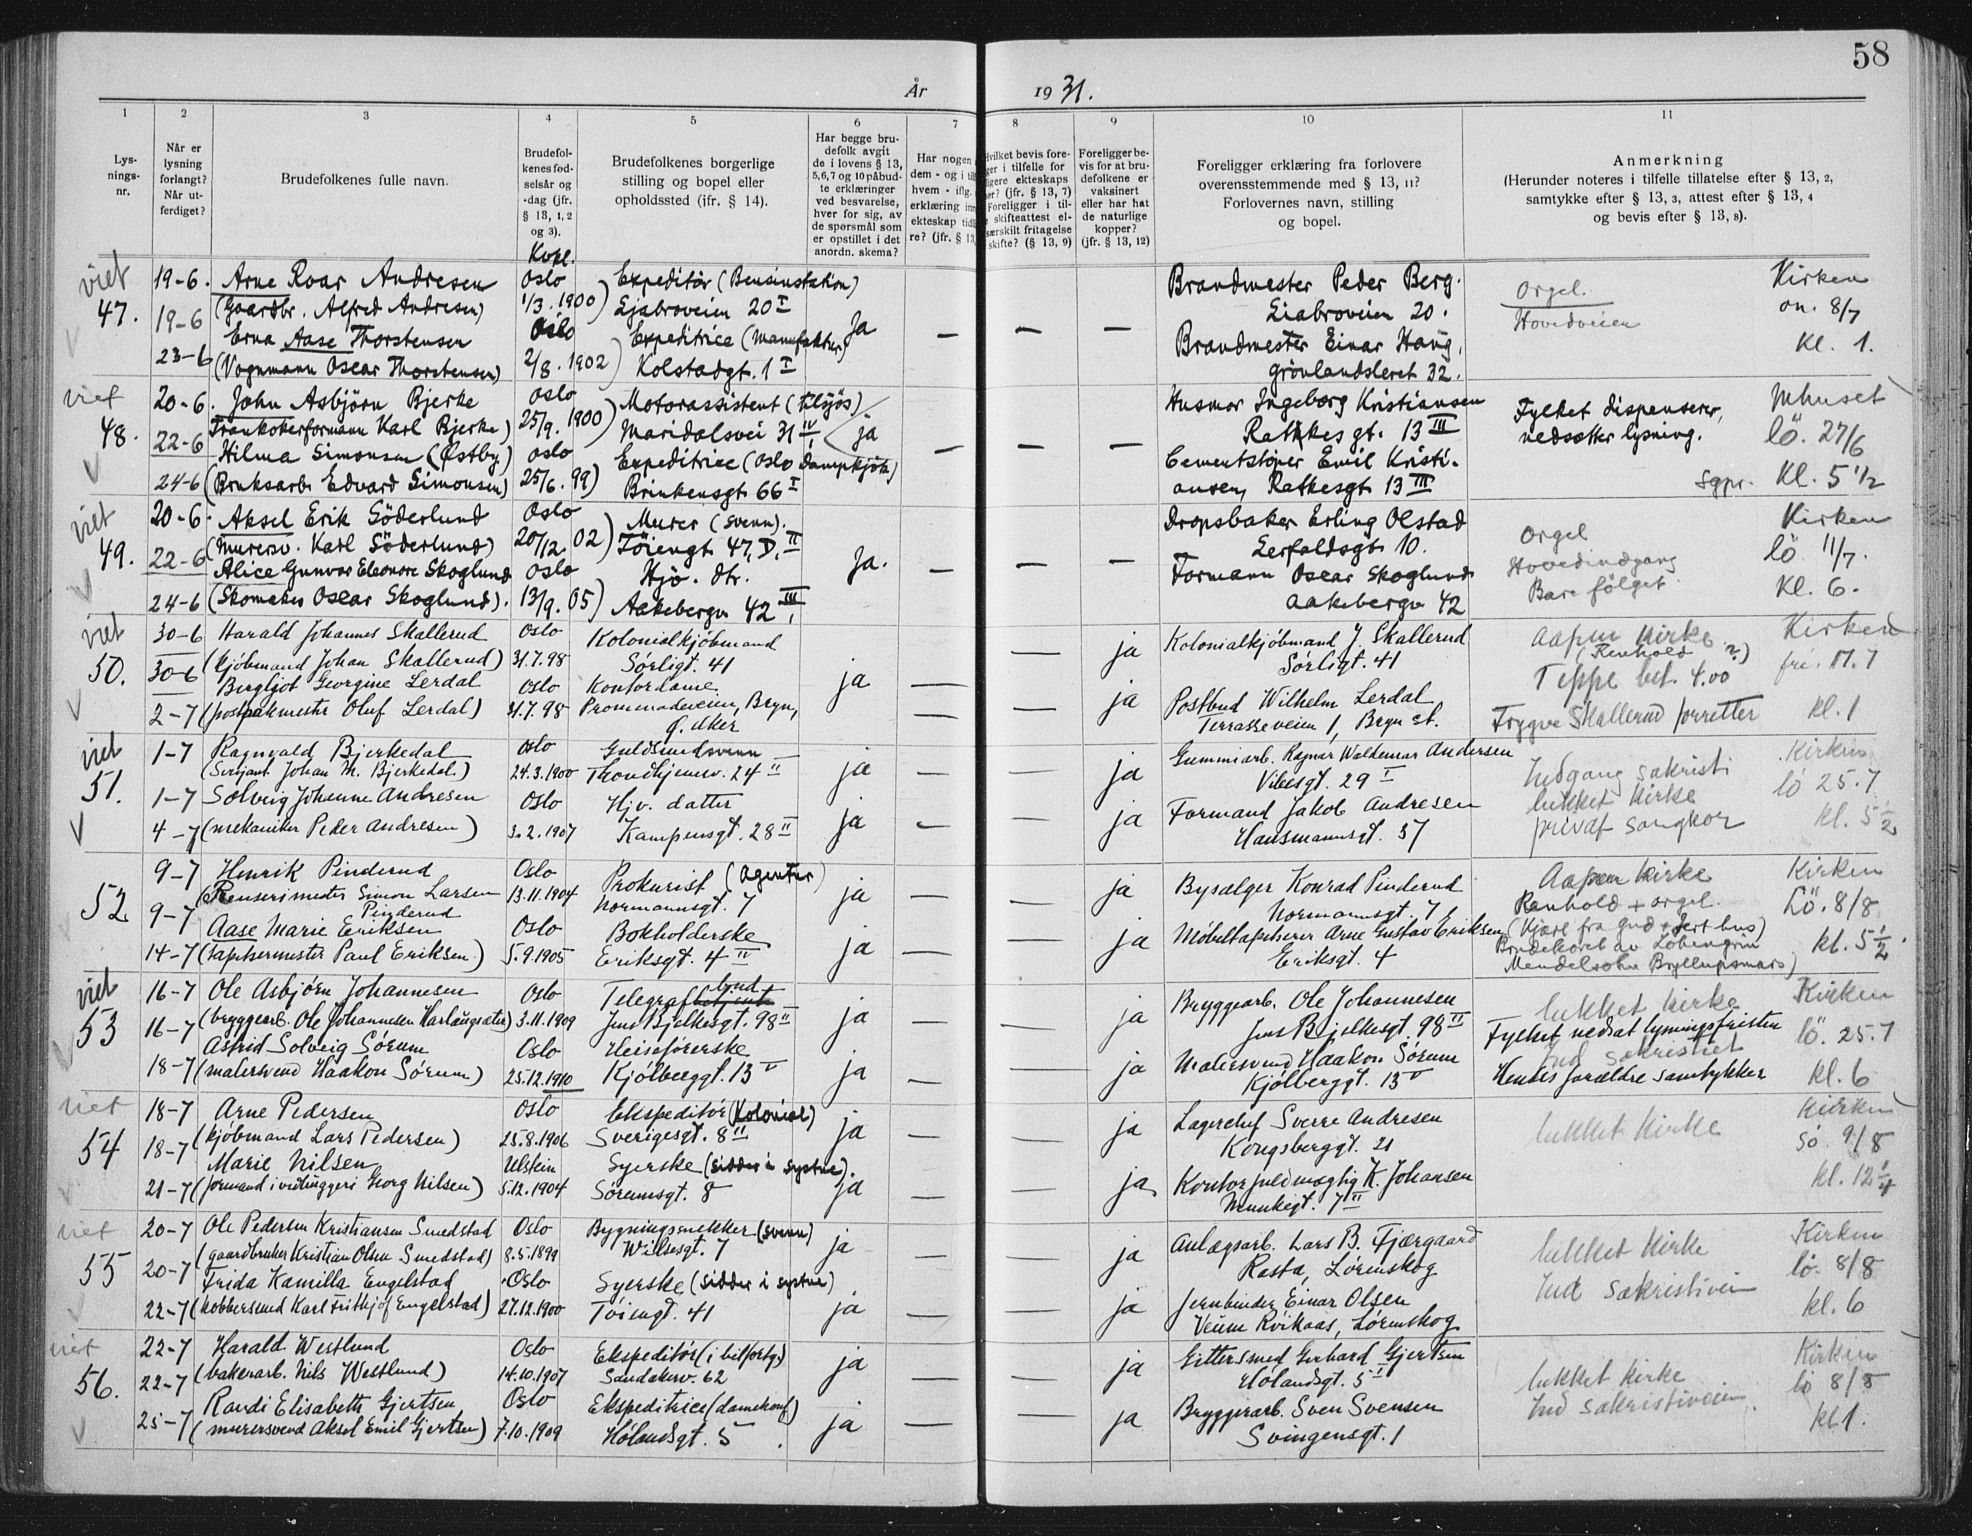 58
År 1931.
1
2
3
4
5
6
7
8
9
10
11
Lys-
nings-
nr.
Når er
lysning
forlangt?
Når ut-
ferdiget?
Brudefolkenes fulle navn.
Brudefol-
kenes fød-
selsår og
-dag (jfr.
§ 13, 1, 2
og 3).
Brudefolkenes borgerlige
stilling og bopel eller
opholdssted (jfr. § 14).
Har begge bru-
defolk avgit
de i lovens § 13,
5, 6, 7 og 10 påbud-
te erklæringer
ved besvarelse,
hver for sig, av
de spørsmål som
er opstillet i det
anordn. skema?
Har nogen
dem - og i til
hvem - iflg.
erklæring inn
ekteskap tid
re? (jfr. § 13,
Hvilket bevis fore-
ger i tilfelle for
ligere ekteskaps
er? (jfr. § 13, 7)
Foreligger i til-
skifteattest el-
særskilt fritagelse
skifte? (§ 13, 9)
Foreligger be-
vis for at bru-
defolkene er
vaksinert
eller har hat
de naturlige
kopper?
(jfr. § 13, 12)
Foreligger erklæring fra forlovere
overensstemmende med § 13, 11?
Forlovernes navn, stilling
og bopel.
Anmerkning
(Herunder noteres i tilfelle tillatelse efter § 13, 2,
samtykke efter § 13, 3, attest efter § 13, 4
og bevis efter § 13, 8).
viet
47.
19-6.
19-6
23-6
Arne Roar Andresen
(Gaardbr. Alfred Andresen)
Erna Aase Thorstensen
(Vognmann Oscar Thorstensen)
Oslo
1/3. 1900
Oslo
2/8. 1902
Expeditør (Bensinstation)
Ljabroveien 20 I
Expeditrice (Manufaktur)
Kolstadgt. 1 I
Ja
— — —
Brandmester Peder Berg.
Liabroveien 20.
Brandmester Einar Haug,
Grønlandsleret 32.
Orgel.
Hovedveien
Kirken
on. 8/7
kl. 1.
viet
48.
20-6.
22-6
24-6
John Asbjörn Bjerke
Karl Bjerke)
Hilma Simonsen (Østby)
(Bruksarb. Edvard Simonsen)
Oslo
25/9. 1900
Oslo
25/6. 99
Motorassistent (tilsjøs)
Maridalsvei 31 IV
Expeditrice (Oslo Dampkjök.)
Brinkensgt. 66 I
ja
— — —
Husmor Ingeborg Kristiansen
Rathkesgt. 13 III
Cementstøper Emil Kristi-
ansen, Ratkesgt. 13 III
Fylket dispenserer,
nedsætter lysning.
Mhuset
lö. 27/6
Kl. 5 1/2
viet
49.
20-6.
22-6
24-6
Aksel Erik Söderlund
(Murersv. Karl Söderlund)
Alice Gunvor Eleonore Skoglund
(Skomaker Oscar Skoglund).
Oslo
20/12. 02
Oslo
13/9. 05
Murer (Svenn).
Töiengt. 47, D, II
Hjv. dtr.
Aakebergv. 42, III
Ja.
— — —
Dropsbaker Erling Olstad
Eerfaldsgt. 10.
Formann Oscar Skoglund
Aakebergv. 42
Orgel
Hovedindgang
Bare følget
Kirken
lö. 11/7.
kl. 6.
viet
50.
30-6
30-6
2-7
Harald Johannes Skallerud
(kjöbmand Johan Skallerud)
Bergljot Georgine Lerdal
(postpakmester Oluf Lerdal)
Oslo
31.7.98
Oslo
31.7.98
Kolonialkjöbmand
Sørligt. 41
Kontordame
Promenadeveien, Bryn,
Ø. Aker
ja
— — ja
— — ja
Kolonialkjöbmand J. Skallerud
Sørligt. 41
Postbud Wilhelm Lerdal
Terrasseveien 1, Bryn st.
Aapen kirke
(Renhold ?)
Teppe bet. 4.00
Trygve Skallerud forretter
Kirken
fre. 17.7
kl. 1
viet
51.
1-7
1-7
4-7
Ragnvald Bjerkedal
(Serjant Johan M. Bjerkedal)
Solveig Johanne Andresen
(mekaniker Peder Andresen)
Oslo
24.3.1900
Oslo
3.2.1907
Guldsmedsvenn
Trondhjemsv. 24 II
Hjv. datter
Kampensgt. 28 II
ja — — ja
ja — — ja
Gummiarb. Ragnar Waldemar Andersen
Vibesgt. 29 I
Formand Jakob Andresen
Hausmannsgt. 37
Indgang sakristi
lukket kirke
privat sangkor
Kirken
lö 25.7
kl. 5 1/2
52
9-7
9-7
14-7
Henrik Pinderud
(Renserimester Simon Larsen
Pinderud
Aase Marie Eriksen
(tapetsermester Paul Eriksen)
Oslo
13.11.1904
Oslo
5.9.1905
Prokurist (Agentur)
Normannsgt. 7
Bokholderske
Eriksgt. 4 II
ja — — ja
ja — — ja
Bysælger Konrad Pinderud
Normannsgt. 7
Møbeltapetserer Arne Gustav Eriksen
Eriksgt. 4
Aapen kirke
Renhold + orgel.
(Kjære fra Gud + Jert hus)
Brudekoret av Lohengrin
Mendelsohn Bryllupsmars)
Kirken
Lö. 8/8
kl. 5 1/2.
viet
53
16-7
16-7
18-7
Ole Asbjørn Johannesen
(bryggearb. Ole Johannesen Harlaugsæter)
Astrid Solveig Sørum
(malersvend Haakon Sørum)
Oslo
3.11.1909
Oslo
25.12.1910
Telegrafbetjent
bud
Jens Bjelkesgt. 98 II
Heisefører­ske
Kjølberggt. 13 V
ja — — ja
ja — — ja
Bryggearb. Ole Johannesen
Jens Bjelkesgt. 98 III
Malersvend Haakon Sørum
Kjølberggt. 13 V
lukket kirke
Fylket nedsat lysningsfristen
Ind sakristiet
Hendes forældre samtykker
Kirken
lö. 25.7
kl. 6
viet
54
18-7
18-7
21-7
Arne Pedersen
(kjöbmand Lars Pedersen)
Marie Nilsen
(formand i vedhuggeri Georg Nilsen)
Oslo
25.8.1906
Ulstein
5.12.1904
Ekspeditör (Kolonial)
Sverigesgt. 8 II
Syerske (sidder i systue).
Sørumsgt. 8
ja — — ja
ja — — ja
Lagerchef Sverre Andresen
Kongsberggt. 21
Kontorfuldmægtig K. Johansen
Munkegt. 7 II
lukket kirke
Kirken
sö. 9/8
kl. 12 1/4
viet
55
20-7
20-7
22-7
Ole Pedersen Kristiansen Smedstad
(gaardbruker Kristian Olsen Smedstad)
Frida Kamilla Engelstad
(kobbersmed Karl Frithjof Engelstad)
Oslo
8.5.1899
Oslo
27.12.1900
Bygningssnekker (svenn)
Willsesgt. 7
Syerske (sidder i systue)
Töiengt. 41
ja — — ja
ja — — ja
Anlægsarb. Lars B. Fjærgaard
Rasta, Lørenskog
Jernbinder Einar Olsen
Veum Kvikaas, Lørenskog
lukket kirke
Ind sakristiveien
Kirken
lö. 8/8
kl. 6
viet
56.
22-7
22-7
25-7
Harald Westlund
(bakerarb. Nils Westlund)
Randi Elisabeth Gjertsen
(murersvend Aksel Emil Gjertsen)
Oslo
14.10.1907
Oslo
7.10.1909
Ekspeditör (i bilfortg.)
Sandakerv. 62
Ekspeditrice (damekonf.)
Hølandsgt. 5
ja — — ja
ja — — ja
Gittersmed Gerhard Gjertsen
Hølandsgt. 5 II
Bryggeriarb. Sven Svensen
Svingensgt. 1
lukket kirke
Ind sakristiveien.
Kirken
lö 8/8
kl 1.